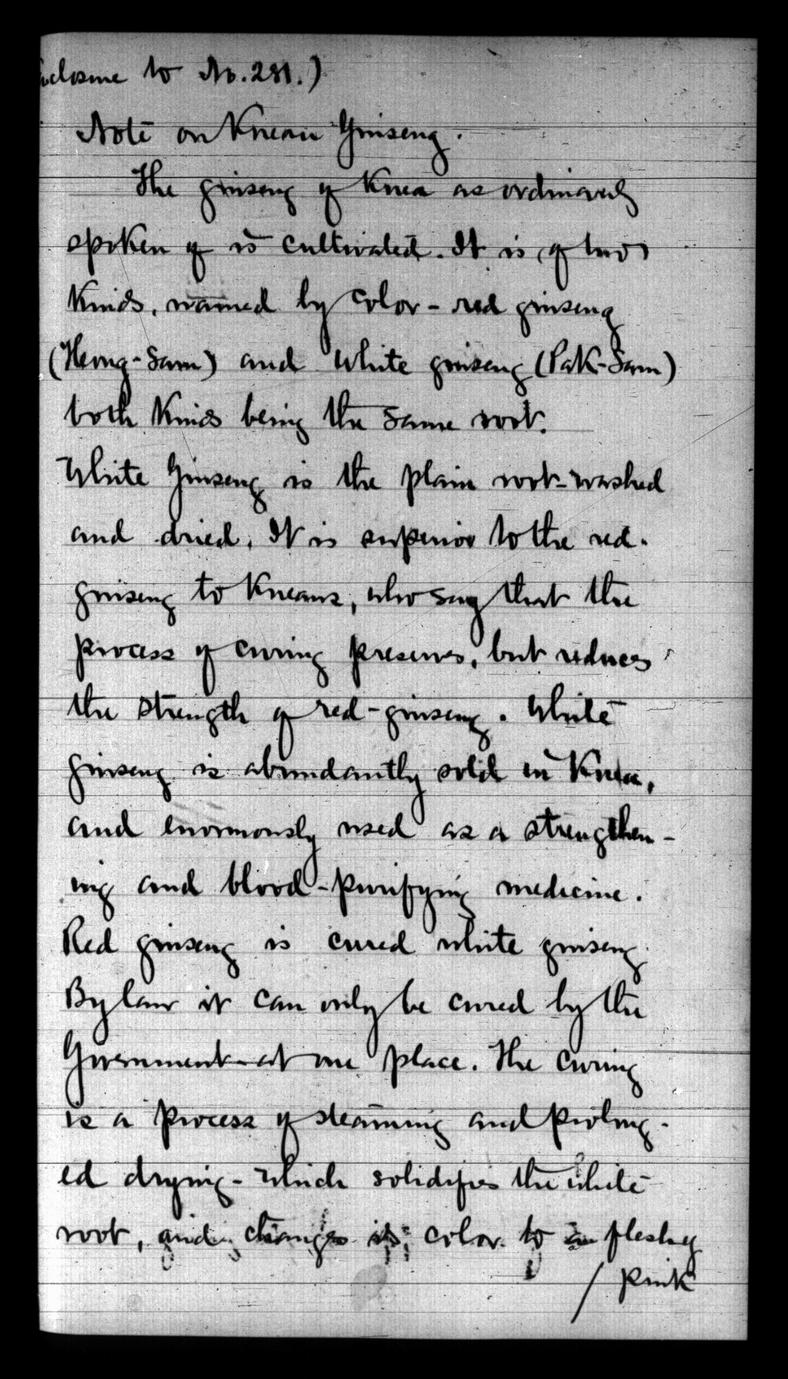 nclosure to No. 281.)
Note on Korean Ginseng.
The ginseng of Korea as ordinarily
spoken of is cultivated. It is of two
kinds, named by color - red ginseng
(Hong-Sam) and white ginseng (Pak-Sam)
both kinds being the same root.
White Ginseng is the plain root-washed
and dried. It is superior to the red-
ginseng to Koreans, who say that the
process of curing preserves, but reduces
the strength of red-ginseng. White
ginseng is abundantly sold in Korea,
and enormously used as a strengthen-
ing and blood-purifying medicine.
Red ginseng is cured white ginseng.
By law it can only be cured by the
Government-at one place. The curing
is a process of steaming and prolong-
ed drying - which solidifies the white
root, and changes its color to a fleshy
/ pink